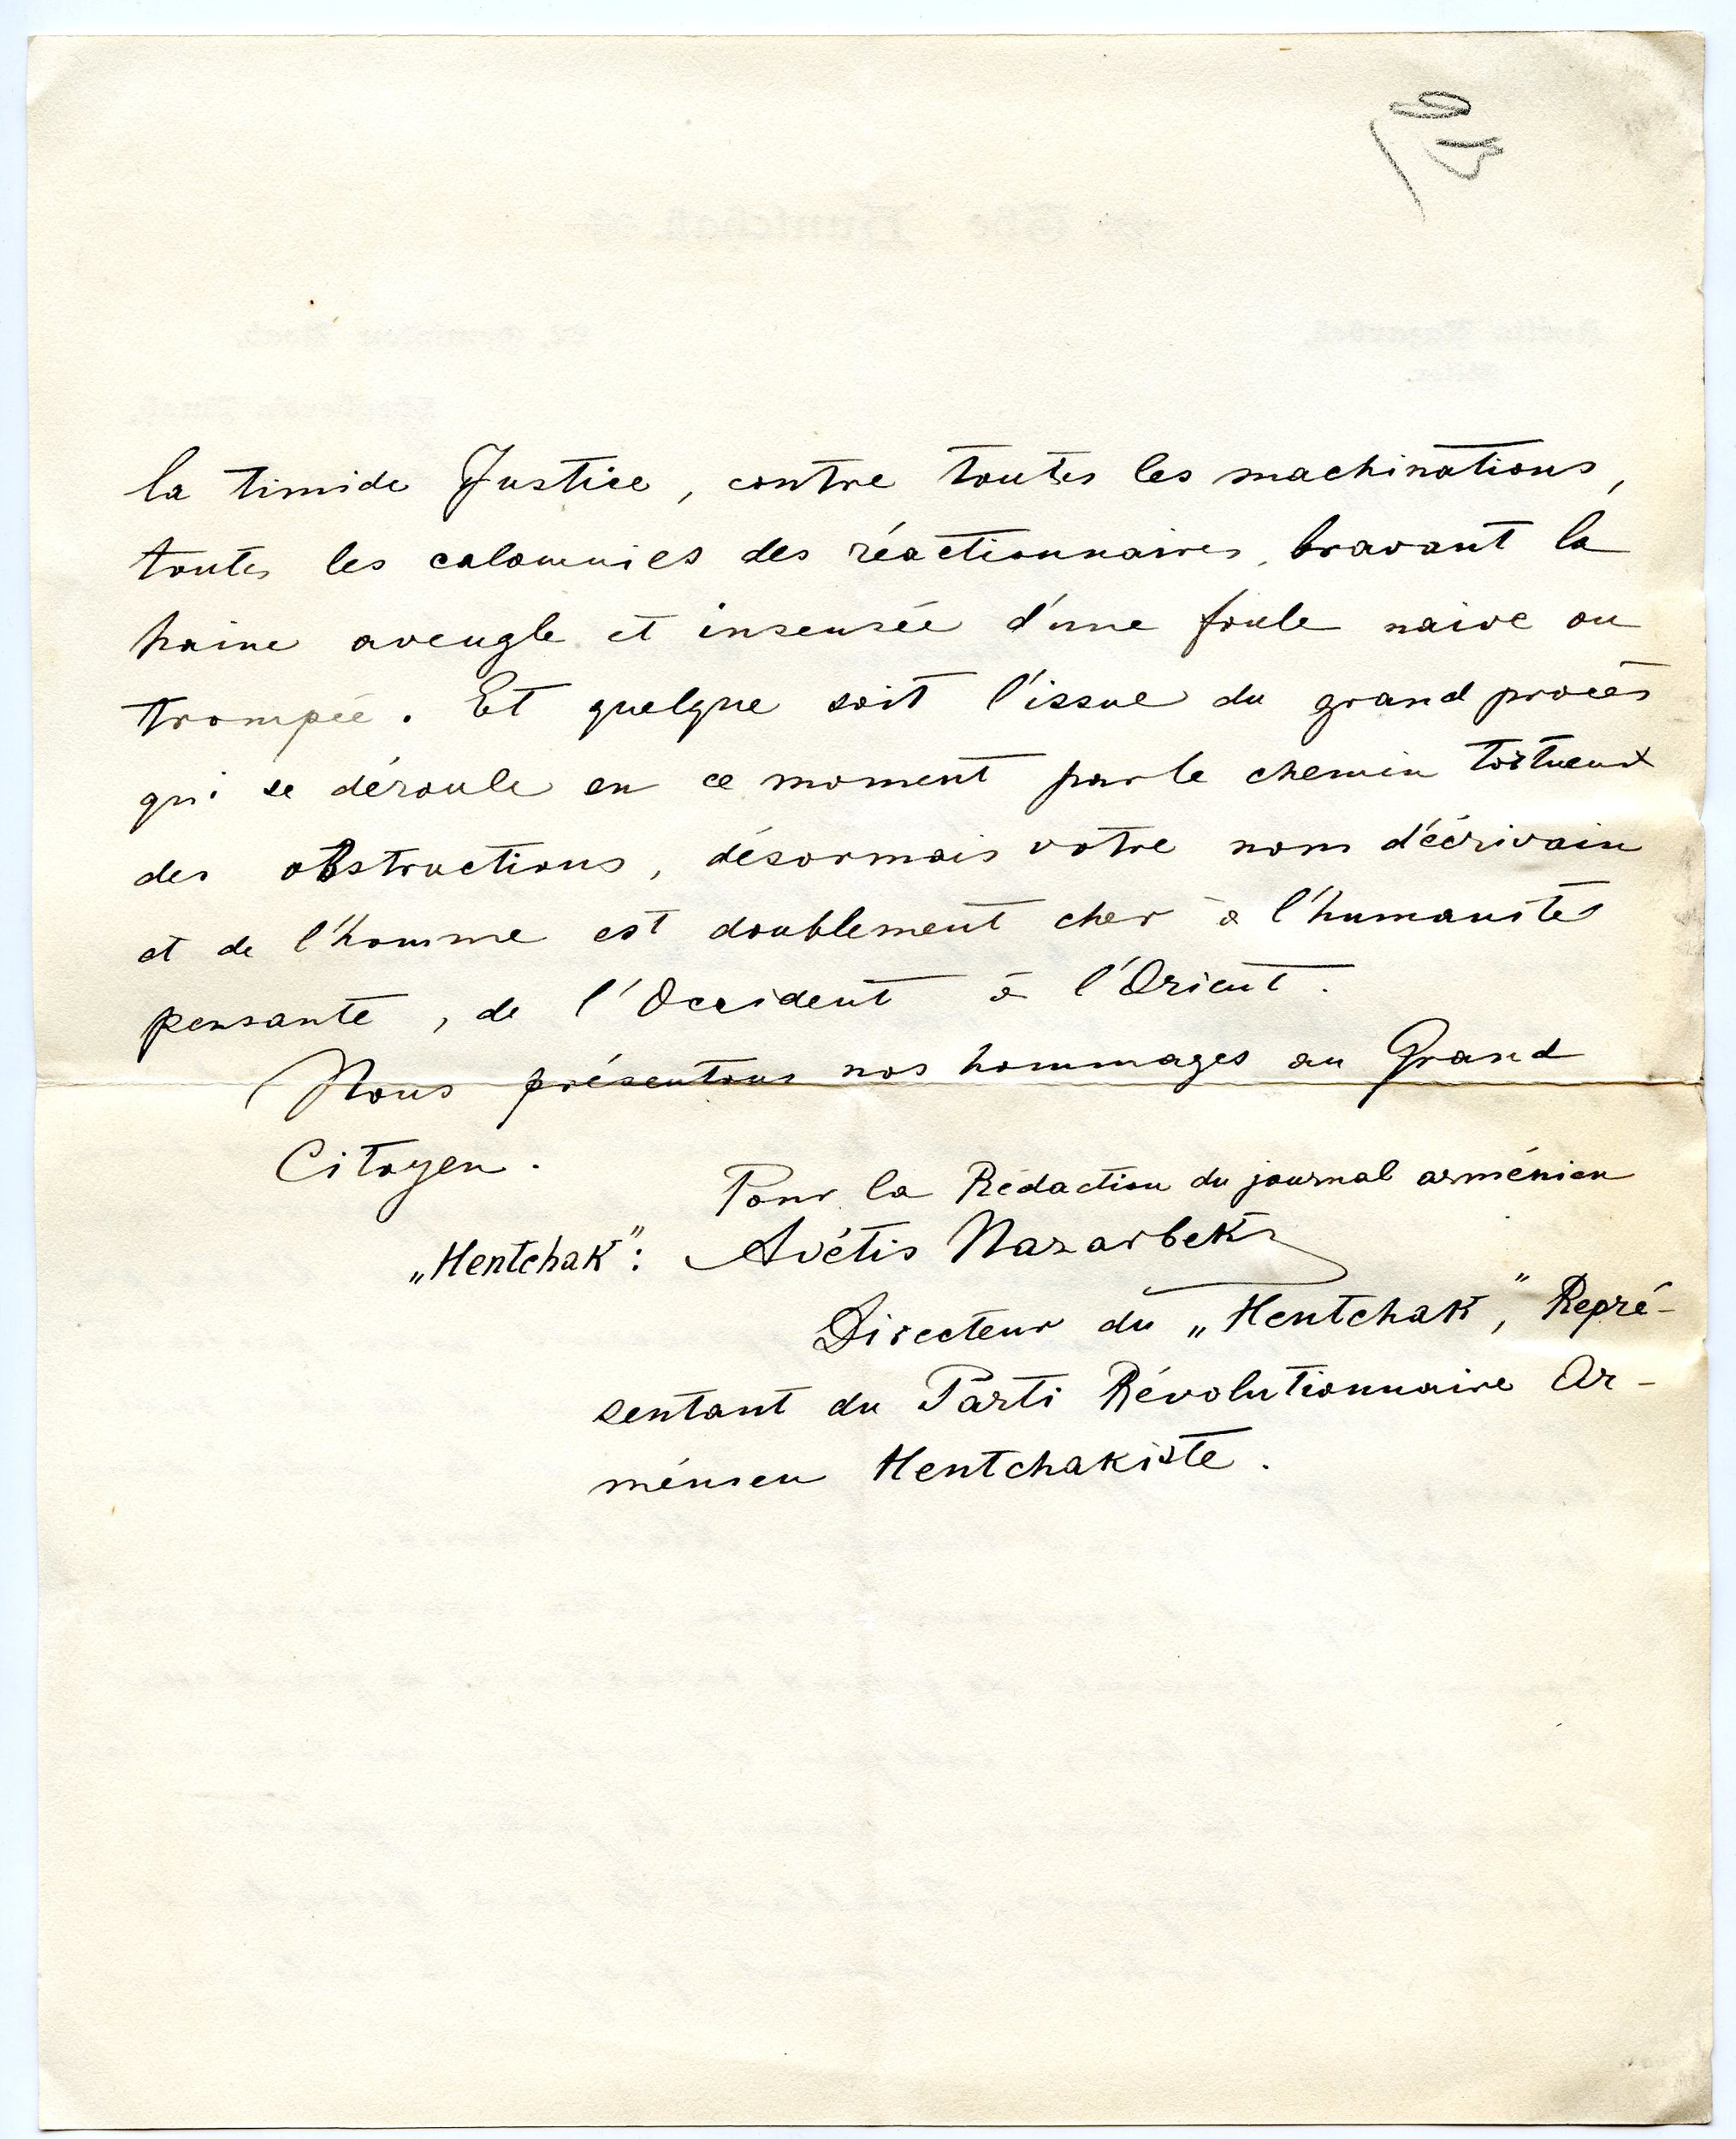 la timide Justice, contre toutes les machinations,
toutes les calomnies des réactionnaires, bravant la
haine aveugle et insensée d'une foule naive ou
trompée. Et quelque soit l'issue du grand procès
qui se déroule en ce moment par le chemin tortueux
des obstructions, désormais votre nom d'écrivain
et de l'homme est doublement cher à l'humanité
pensante, de l'Occident à l'Orient.
Nous présentons nos hommages au Grand
Citoyen.
Pour la Rédaction du journal arménien
„Hentchak": Avétis Nazarbek
Directeur du „Hentchak", Repré-
sentant du Parti Révolutionnaire Ar-
ménien Hentchakiste.